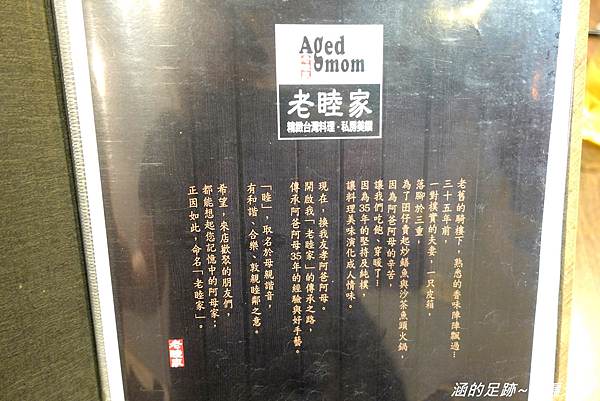 Aged
mom
老睦家
精緻台灣料理・私房美饌
老舊的騎樓下,熟悉的香味陣陣飄過…
三十五年前,
一對樸實的夫妻,一只皮箱,
落腳於三重,
為了囝仔賣起炒鱔魚與沙茶魚頭火鍋,
因為阿爸阿母的辛苦,
讓我們吃飽、穿暖了…
因為35年的堅持及純樸,
讓料理美味演化成人情味。
現在,換我友孝阿爸阿母。
開啟我「老睦家」的傳承之路,
傳承阿爸阿母35年的經驗與好手藝。
「睦」,取名於母親諧音,
有和諧、合樂、敦親睦鄰之意。
希望,來店歡聚的朋友們,
都能想起您記憶中的阿母家;
正因如此,命名「老睦家」。
老睦家
涵的足跡~